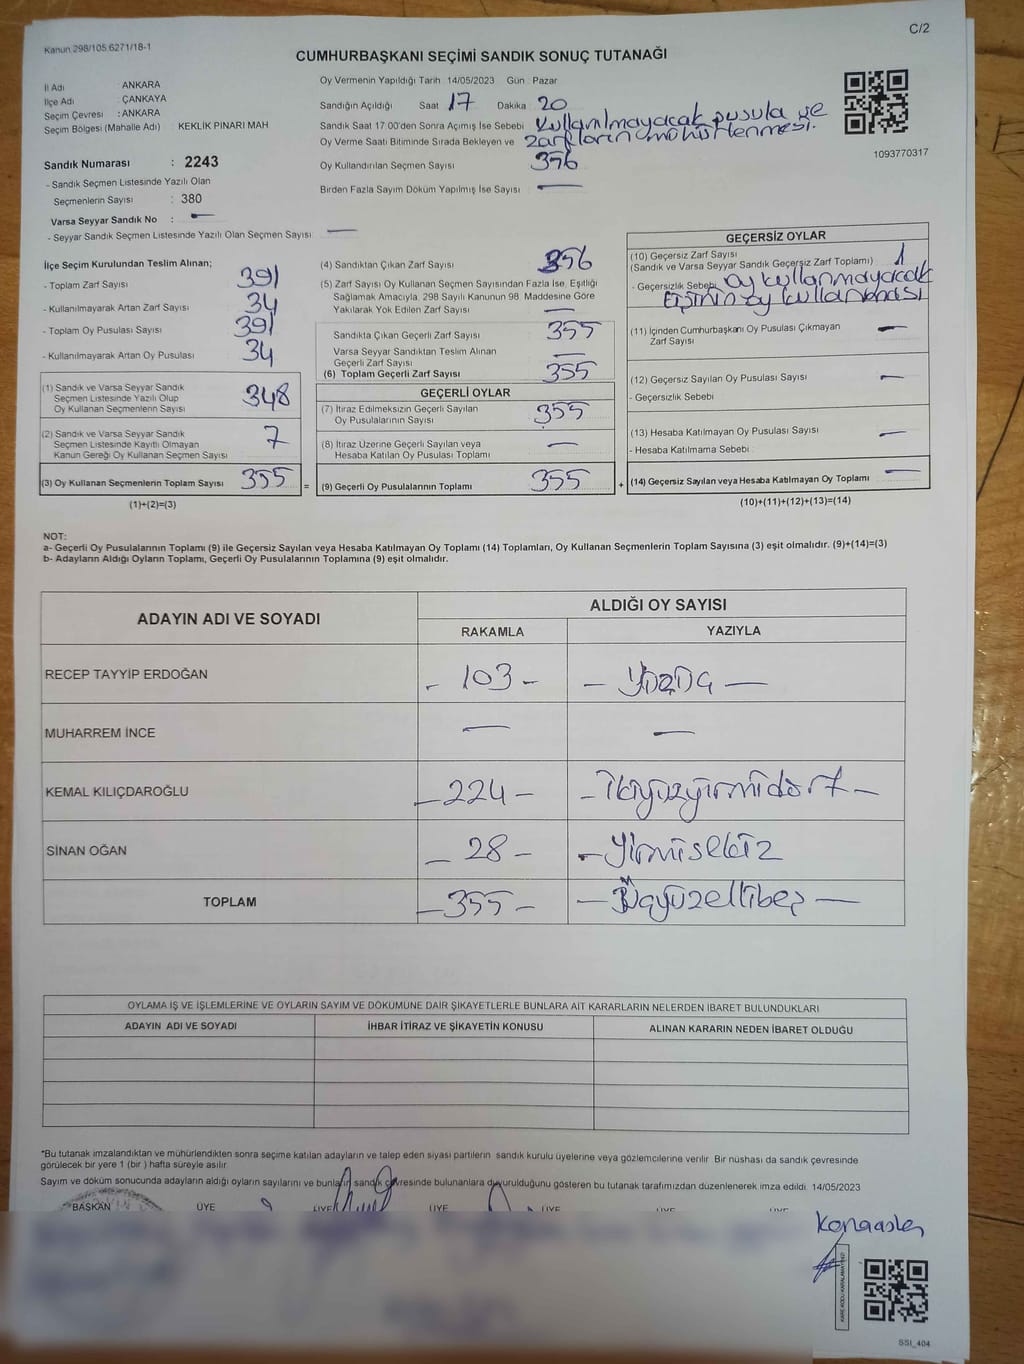 C/2
Kanun 298/105.6271/18-1
CUMHURBAŞKANI SEÇİMİ SANDIK SONUÇ TUTANAĞI
İl Adı ANKARA
İlçe Adı ÇANKAYA
Seçim Çevresi : ANKARA
Seçim Bölgesi (Mahalle Adı) KEKLİK PINARI MAH
Sandık Numarası : 2243
- Sandık Seçmen Listesinde Yazılı Olan
Seçmenlerin Sayısı : 380
Varsa Seyyar Sandık No : —
- Seyyar Sandık Seçmen Listesinde Yazılı Olan Seçmen Sayısı —
Oy Vermenin Yapıldığı Tarih 14/05/2023 Gün Pazar
Sandığın Açıldığı Saat 17 Dakika 20
Sandık Saat 17:00'den Sonra Açımış İse Sebebi Kullanılmayacak pusula ve
Oy Verme Saati Bitiminde Sırada Bekleyen ve zarfların mühürlenmesi.
Oy Kullandırılan Seçmen Sayısı 356
Birden Fazla Sayım Döküm Yapılmış İse Sayısı —
1093770317
İlçe Seçim Kurulundan Teslim Alınan;
- Toplam Zarf Sayısı 391
- Kullanılmayarak Artan Zarf Sayısı 34
- Toplam Oy Pusulası Sayısı 391
- Kullanılmayarak Artan Oy Pusulası 34
(1) Sandık ve Varsa Seyyar Sandık
Seçmen Listesinde Yazılı Olup
Oy Kullanan Seçmenlerin Sayısı 348
(2) Sandık ve Varsa Seyyar Sandık
Seçmen Listesinde Kayıtlı Olmayan
Kanun Gereği Oy Kullanan Seçmen Sayısı 7
(3) Oy Kullanan Seçmenlerin Toplam Sayısı 355 =
(1)+(2)=(3)
(4) Sandıktan Çıkan Zarf Sayısı 356
(5) Zarf Sayısı Oy Kullanan Seçmen Sayısından Fazla İse, Eşitliği
Sağlamak Amacıyla, 298 Sayılı Kanunun 98. Maddesine Göre
Yakılarak Yok Edilen Zarf Sayısı —
Sandıkta Çıkan Geçerli Zarf Sayısı 355
Varsa Seyyar Sandıktan Teslim Alınan
Geçerli Zarf Sayısı —
(6) Toplam Geçerli Zarf Sayısı 355
GEÇERLİ OYLAR
(7) İtiraz Edilmeksizin Geçerli Sayılan
Oy Pusulalarının Sayısı 355
(8) İtiraz Üzerine Geçerli Sayılan veya
Hesaba Katılan Oy Pusulası Toplamı —
(9) Geçerli Oy Pusulalarının Toplamı 355 +
GEÇERSİZ OYLAR
(10) Geçersiz Zarf Sayısı
(Sandık ve Varsa Seyyar Sandık Geçersiz Zarf Toplamı) 1
- Geçersizlik Sebebi Oy kullanmayacak
kişinin oy kullanması
(11) İçinden Cumhurbaşkanı Oy Pusulası Çıkmayan
Zarf Sayısı —
(12) Geçersiz Sayılan Oy Pusulası Sayısı —
- Geçersizlik Sebebi
(13) Hesaba Katılmayan Oy Pusulası Sayısı —
- Hesaba Katılmama Sebebi
(14) Geçersiz Sayılan veya Hesaba Katılmayan Oy Toplamı —
(10)+(11)+(12)+(13)=(14)
NOT:
a- Geçerli Oy Pusulalarının Toplamı (9) ile Geçersiz Sayılan veya Hesaba Katılmayan Oy Toplamı (14) Toplamları, Oy Kullanan Seçmenlerin Toplam Sayısına (3) eşit olmalıdır. (9)+(14)=(3)
b- Adayların Aldığı Oyların Toplamı, Geçerli Oy Pusulalarının Toplamına (9) eşit olmalıdır.
ADAYIN ADI VE SOYADI ALDIĞI OY SAYISI
RAKAMLA YAZIYLA
RECEP TAYYİP ERDOĞAN - 103 - - Yüzüç —
MUHARREM İNCE — —
KEMAL KILIÇDAROĞLU - 224 - - İkiyüzyirmidört -
SİNAN OĞAN - 28 - - Yirmisekiz
TOPLAM - 355 - - Üçyüzellibeş —
OYLAMA İŞ VE İŞLEMLERİNE VE OYLARIN SAYIM VE DÖKÜMÜNE DAİR ŞİKAYETLERLE BUNLARA AİT KARARLARIN NELERDEN İBARET BULUNDUKLARI
ADAYIN ADI VE SOYADI İHBAR İTİRAZ VE ŞİKAYETİN KONUSU ALINAN KARARIN NEDEN İBARET OLDUĞU
*Bu tutanak imzalandıktan ve mühürlendikten sonra seçime katılan adayların ve talep eden siyasi partilerin sandık kurulu üyelerine veya gözlemcilerine verilir. Bir nüshası da sandık çevresinde
görülecek bir yere 1 (bir) hafta süreyle asılır.
Sayım ve döküm sonucunda adayların aldığı oyların sayılarını ve bunların sandık çevresinde bulunanlara duyurulduğunu gösteren bu tutanak tarafımızdan düzenlenerek imza edildi. 14/05/2023
BAŞKAN ÜYE ÜYE ÜYE ÜYE ÜYE ÜYE
SSI_404